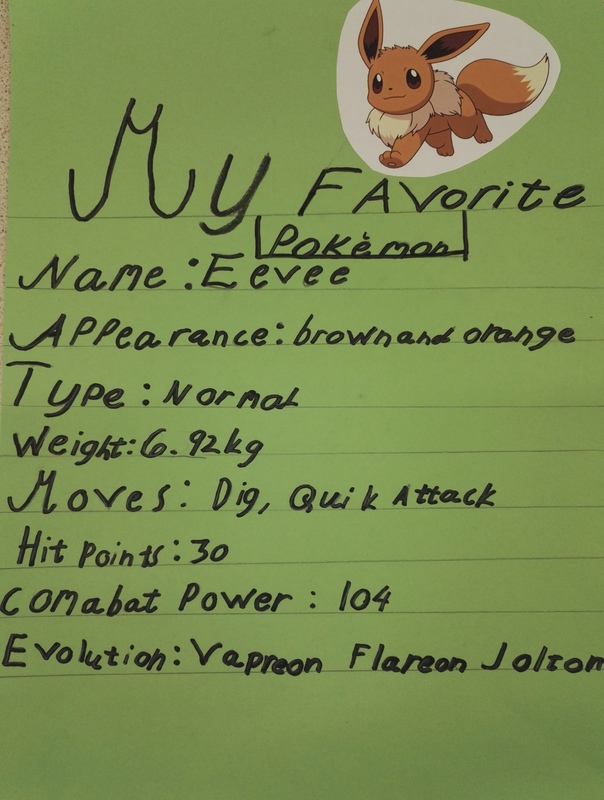 My FAvorite
Pokèmon
Name: Eevee
Appearance: brown and orange
Type: Normal
Weight: 6.92kg
Moves: Dig, Quik Attack
Hit Points: 30
COMabat Power: 104
Evolution: Vapreon Flareon Jolton